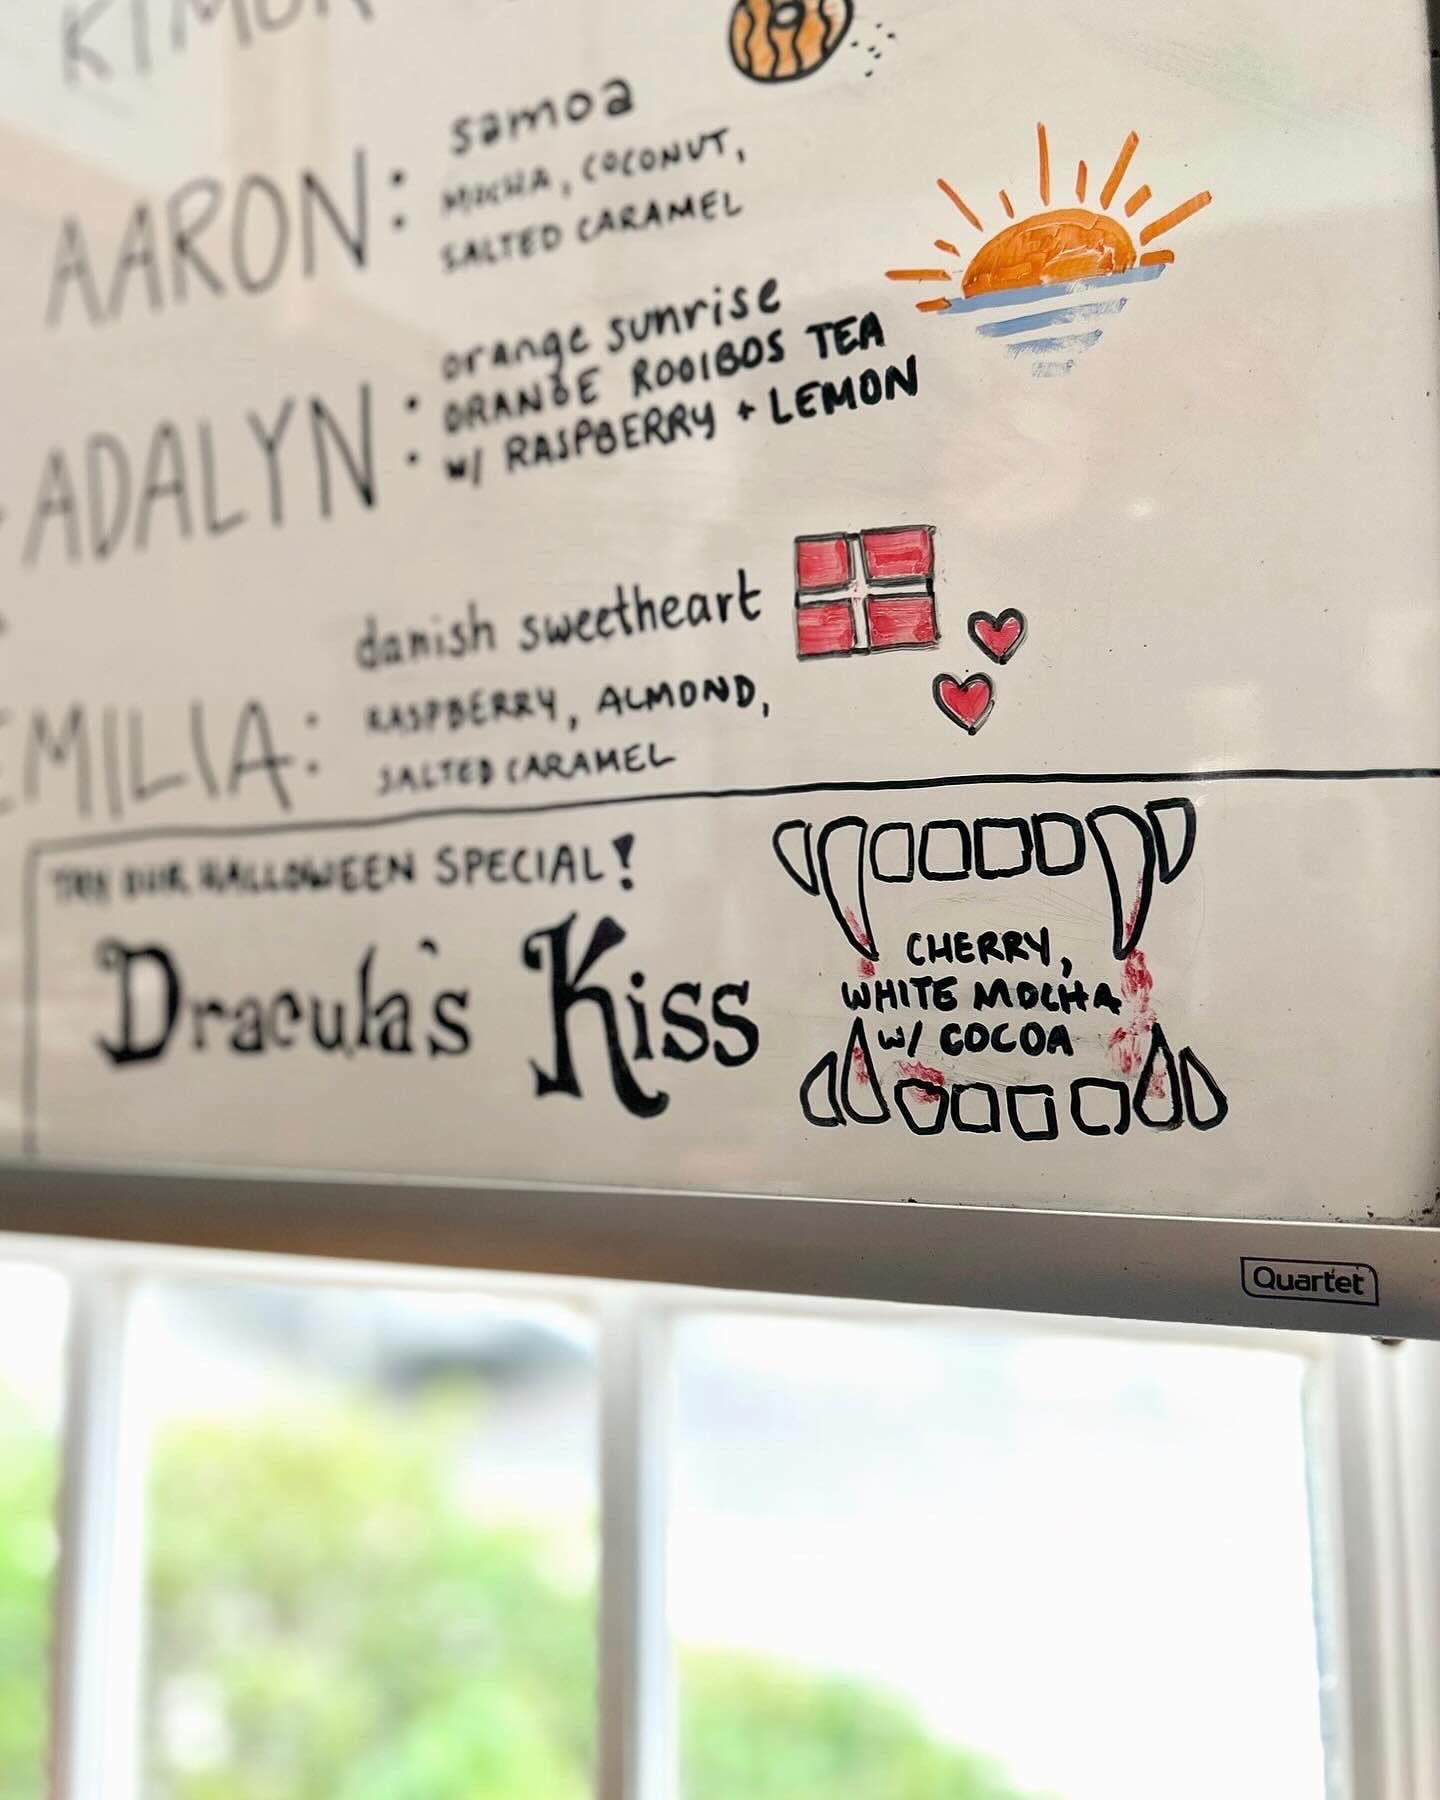 AARON: samoa
MOCHA, COCONUT,
SALTED CARAMEL
ADALYN: orange sunrise
ORANGE ROOIBOS TEA
w/ RASPBERRY + LEMON
EMILIA: danish sweetheart
RASPBERRY, ALMOND,
SALTED CARAMEL
TRY OUR HALLOWEEN SPECIAL!
Dracula's Kiss
CHERRY,
WHITE MOCHA
w/ COCOA
Quartet